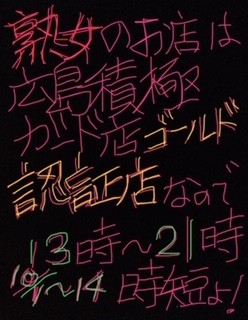 熟女のお店は
広島積極
ガード店ゴールド
認証店なので
13時～21時
10/1～14 時短よ!